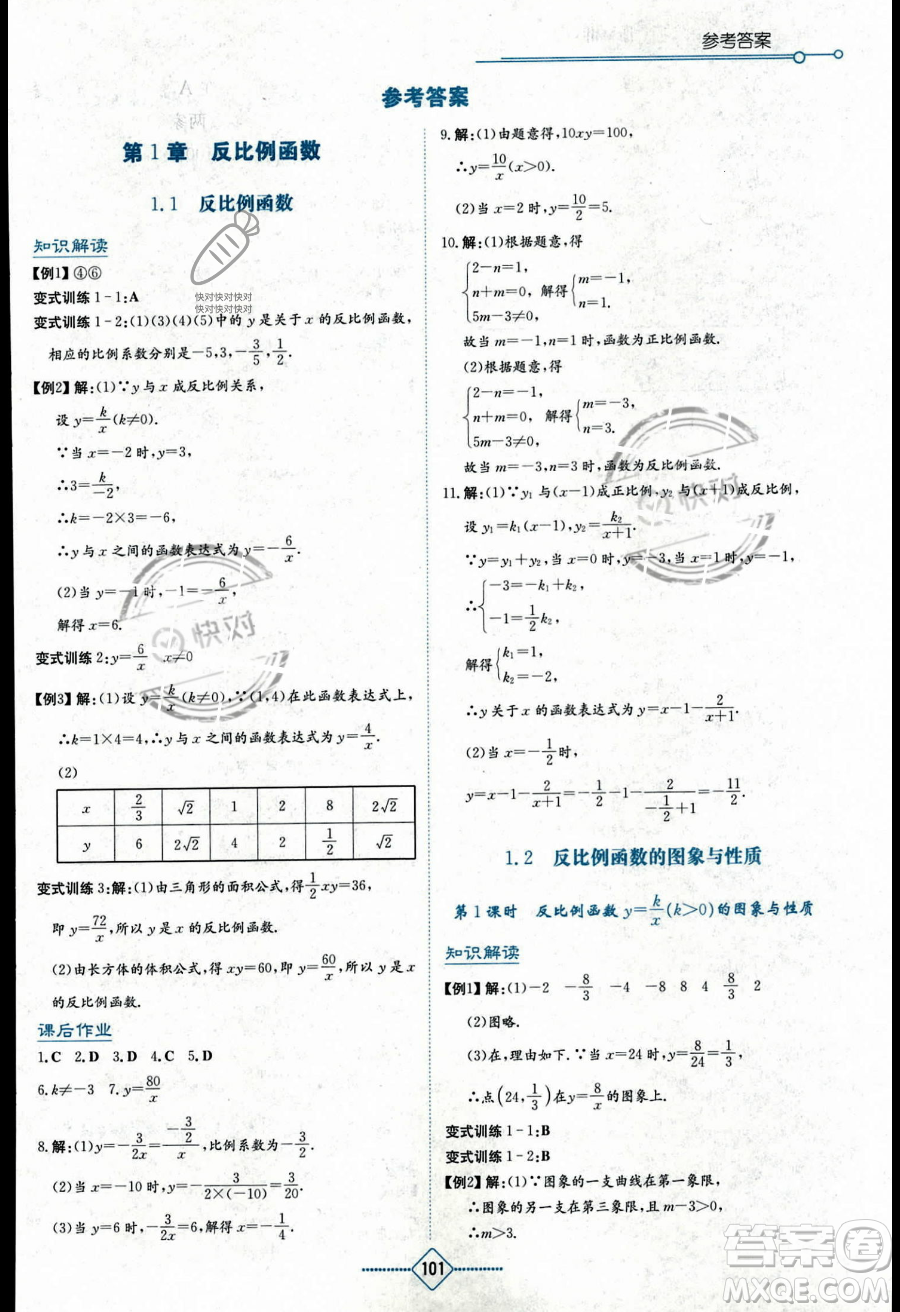 参考答案
参考答案
第1章 反比例函数
1.1 反比例函数
知识解读
【例1】④⑥
变式训练1-1:A
变式训练1-2:(1)(3)(4)(5)中的y是关于x的反比例函数,
相应的比例系数分别是-5,3,-3/5,1/2.
【例2】解:(1)∵y与x成反比例关系,
设y=k/x(k≠0).
∵当x=-2时,y=3,
∴3=k/-2,
∴k=-2×3=-6,
∴y与x之间的函数表达式为y=-6/x.
(2)当y=-1时,-1=-6/x,
解得x=6.
变式训练2:y=6/x x≠0
【例3】解:(1)设y=k/x(k≠0),∵(1,4)在此函数表达式上,
∴k=1×4=4,∴y与x之间的函数表达式为y=4/x.
(2)
x 2/3 √2 1 2 8 2√2
y 6 2√2 4 2 1/2 √2
变式训练3:解:(1)由三角形的面积公式,得1/2xy=36,
即y=72/x,所以y是x的反比例函数.
(2)由长方体的体积公式,得xy=60,即y=60/x,所以y是x
的反比例函数.
课后作业
1.C 2.D 3.D 4.C 5.D
6.k≠-3 7.y=80/x
8.解:(1)y=-3/2x=(-3/2)/x,比例系数为-3/2.
(2)当x=-10时,y=-3/(2×(-10))=3/20.
(3)当y=6时,-3/2x=6,解得x=-1/4.
9.解:(1)由题意得,10xy=100,
∴y=10/x(x>0).
(2)当x=2时,y=10/2=5.
10.解:(1)根据题意,得
{2-n=1,
n+m=0, 解得{m=-1,
n=1.
5m-3≠0,
故当m=-1,n=1时,函数为正比例函数.
(2)根据题意,得
{2-n=-1,
n+m=0, 解得{m=-3,
n=3.
5m-3≠0,
故当m=-3,n=3时,函数为反比例函数.
11.解:(1)∵y₁与(x-1)成正比例,y₂与(x+1)成反比例,
设y₁=k₁(x-1),y₂=k₂/(x+1).
∵y=y₁+y₂,当x=0时,y=-3,当x=1时,y=-1,
∴{-3=-k₁+k₂,
-1=1/2k₂,
解得{k₁=1,
k₂=-2.
∴y关于x的函数表达式为y=x-1-2/(x+1).
(2)当x=-1/2时,
y=x-1-2/(x+1)=-1/2-1-2/(-1/2+1)=-11/2.
1.2 反比例函数的图象与性质
第1课时 反比例函数y=k/x(k>0)的图象与性质
知识解读
【例1】解:(1)-2 -8/3 -4 -8 8 4 8/3 2
(2)图略.
(3)在,理由如下:∵当x=24时,y=8/24=1/3,
∴点(24,1/3)在y=8/x的图象上.
变式训练1-1:B
变式训练1-2:B
【例2】解:(1)∵图象的一支曲线在第一象限,
∴图象的另一支在第三象限,∴m-3>0,
∴m>3.
101
快对快对快对
快对快对快对
快对
快对
答案圈
MXQE.COM